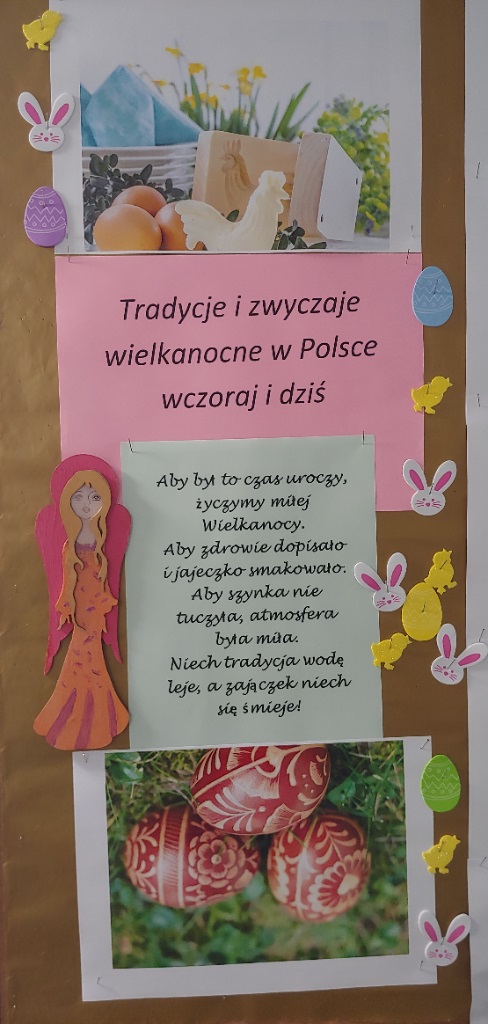 Tradycje i zwyczaje
wielkanocne w Polsce
wczoraj i dziś
Aby był to czas uroczy,
życzymy miłej
Wielkanocy.
Aby zdrowie dopisało
i jajeczko smakowało.
Aby szynka nie
tuczyła, atmosfera
była miła.
Niech tradycja wodę
leje, a zajączek niech
się śmieje!